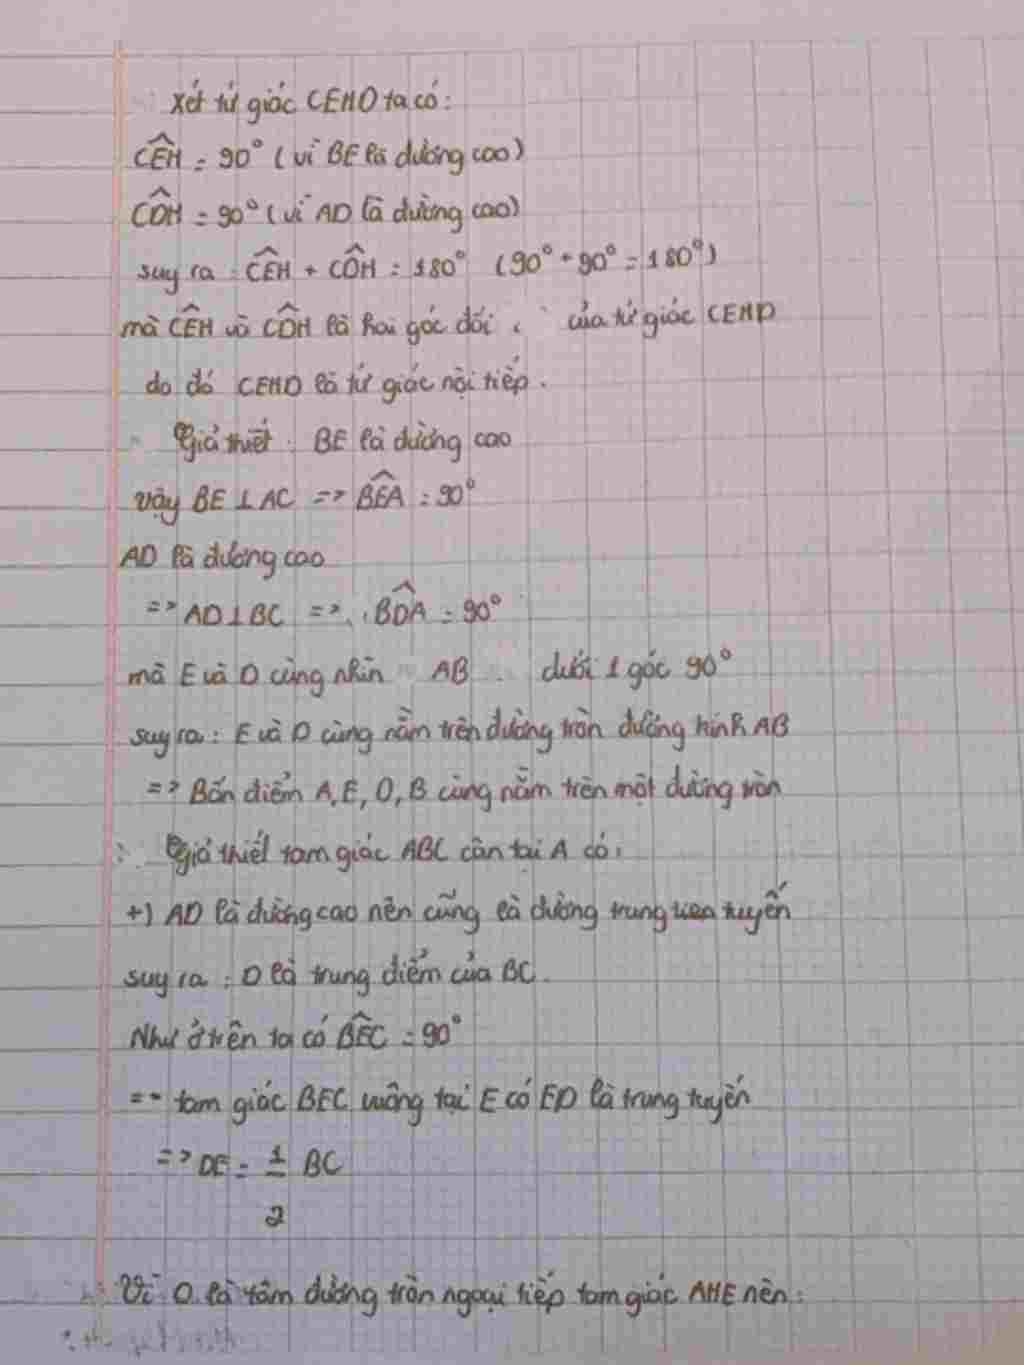 Xét tứ giác CEHD ta có:
CÊH = 90° (vì BE là đường cao)
CD̂H = 90° (vì AD là đường cao)
suy ra: CÊH + CD̂H = 180° (90° + 90° = 180°)
mà CÊH và CD̂H là hai góc đối của tứ giác CEHD
do đó CEHD là tứ giác nội tiếp.
Giả thiết: BE là đường cao
vậy BE ⊥ AC => BÊA = 90°
AD là đường cao
=> AD ⊥ BC => BD̂A = 90°
mà E và D cùng nhìn AB dưới 1 góc 90°
suy ra: E và D cùng nằm trên đường tròn đường kính AB
=> Bốn điểm A, E, D, B cùng nằm trên một đường tròn
Giả thiết tam giác ABC cân tại A có:
+) AD là đường cao nên cũng là đường trung tuyến
suy ra: D là trung điểm của BC.
Như ở trên ta có BÊC = 90°
=> tam giác BEC vuông tại E có ED là trung tuyến
=> DE = 1/2 BC
Vì O là tâm đường tròn ngoại tiếp tam giác AHE nên: